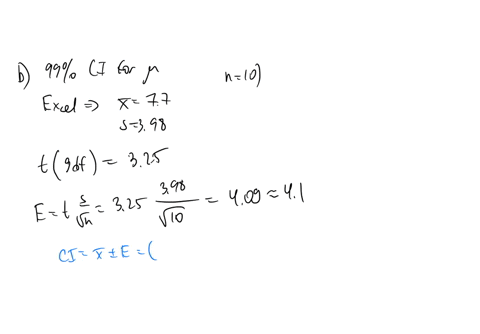 b) 99% CI for μ n=10)
Excel => x̄ = 7.7
s=3.98
t(9df) = 3.25
E = t s/√n = 3.25 3.98/√10 = 4.09 ≈ 4.1
CI = x̄ ± E = (